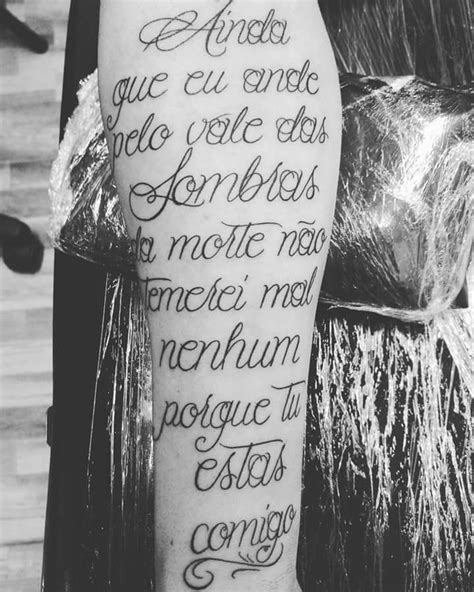 Ainda
que eu ande
pelo vale das
Sombras
da morte não
temerei mal
nenhum
porque tu
estas
comigo